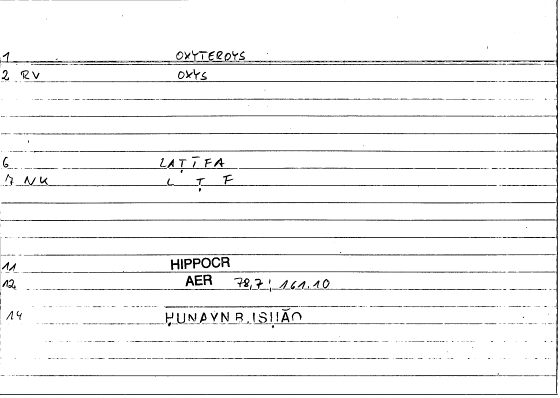 1 OXYTEROYS
2 RV OXYS
6 LAṬĪFA
7 NK L Ṭ F
11 HIPPOCR
12 AER 78,7; 161.10
14 ḤUNAYN B. ISḤĀQ